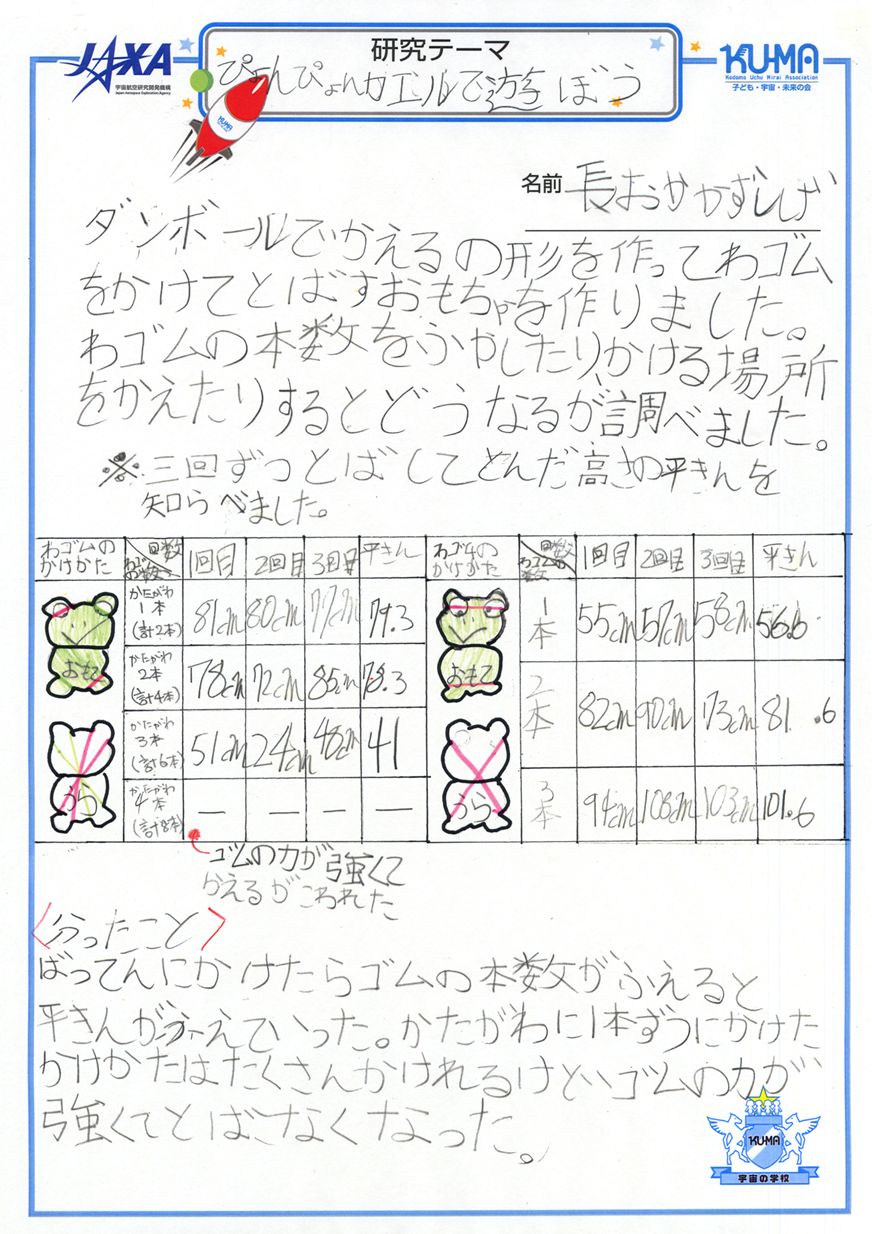 JAXA
宇宙航空研究開発機構
Japan Aerospace Exploration Agency
研究テーマ
ぴょんぴょんカエルで遊ぼう
KUMA
KU-MA
Kodomo Uchu Mirai Association
子ども・宇宙・未来の会
名前 長おかかずしげ
ダンボールでかえるの形を作ってわゴム
をかけてとばすおもちゃを作りました。
わゴムの本数をふやしたり、かける場所
をかえたりするとどうなるが調べました。
※三回ずつとばしてとんだ高さの平きんを
知らべました。
わゴムのかけかた 回数 わゴムの数 1回目 2回目 3回目 平きん
おもて うら
かたがわ1本(計2本) 81cm 80cm 77cm 79.3
かたがわ2本(計4本) 78cm 72cm 85cm 78.3
かたがわ3本(計6本) 51cm 24cm 48cm 41
かたがわ4本(計8本) — — — —
わゴムのかけかた 回数 わゴムの数 1回目 2回目 3回目 平きん
おもて うら
1本 55cm 57cm 58cm 56.6
2本 82cm 90cm 73cm 81.6
3本 94cm 108cm 103cm 101.6
ゴムの力が強くて
かえるがこわれた
<分ったこと>
ばってんにかけたらゴムの本数がふえると
平きんがふえていった。かたがわに1本ずつにかけた
かけかたはたくさんかけれるけど、ゴムの力が
強くてとばなくなった。
KU-MA
宇宙の学校